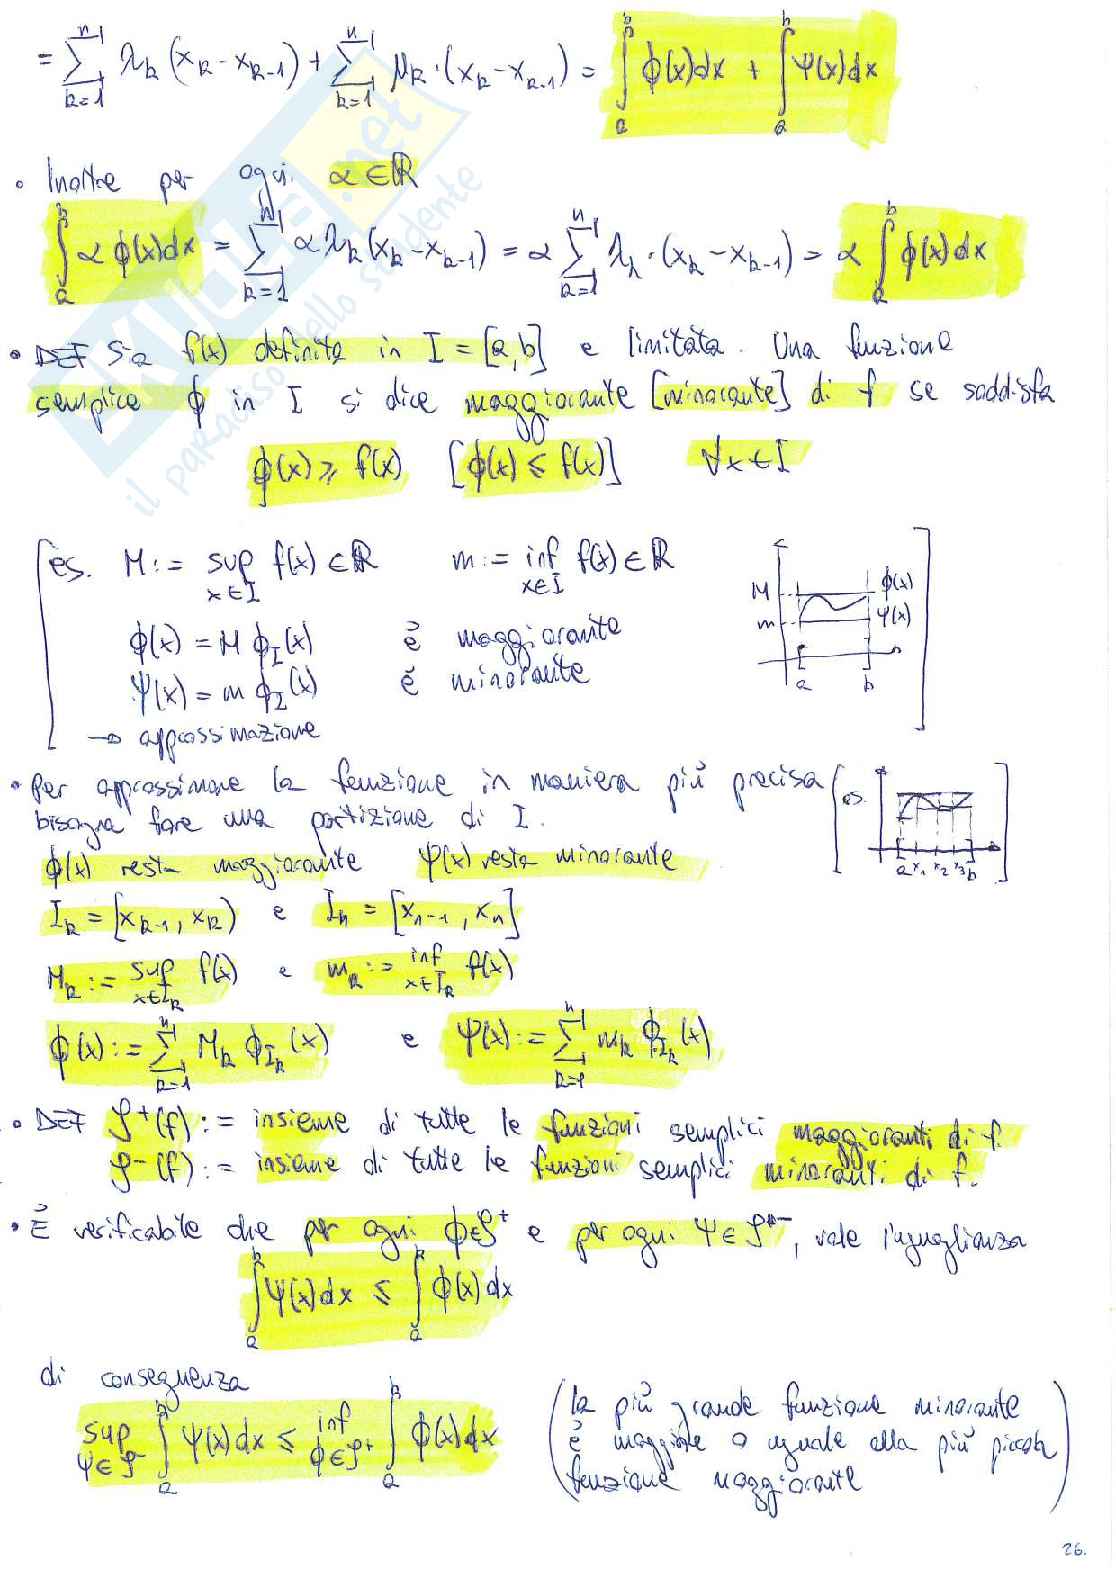 = ∑_{k=1}^{n-1} λ_k (x_k - x_{k-1}) + ∑_{k=1}^{n-1} μ_k · (x_k - x_{k-1}) = ∫_a^b ϕ(x)dx + ∫_a^b ψ(x)dx
• Inoltre per ogni α ∈ ℝ
∫_a^b α ϕ(x)dx = ∑_{k=1}^{n-1} α λ_k (x_k - x_{k-1}) = α ∑_{k=1}^{n-1} λ_k · (x_k - x_{k-1}) = α ∫_a^b ϕ(x)dx
• DEF Sia f(x) definita in I = [a,b] e limitata. Una funzione
semplice ϕ in I si dice maggiorante [minorante] di f se soddisfa
ϕ(x) ≥ f(x) [ϕ(x) ≤ f(x)] ∀x ∈ I
es. M := sup_{x∈I} f(x) ∈ ℝ m := inf_{x∈I} f(x) ∈ ℝ
ϕ(x) = M ϕ_I(x) è maggiorante
ψ(x) = m ϕ_I(x) è minorante
→ approssimazione
M ϕ(x)
m ψ(x)
a b
• Per approssimare la funzione in maniera più precisa
bisogna fare una partizione di I.
es.
a x_1 x_2 x_3 b
ϕ(x) resta maggiorante ψ(x) resta minorante
I_k = [x_{k-1}, x_k) e I_n = [x_{n-1}, x_n]
M_k := sup_{x∈I_k} f(x) e m_k := inf_{x∈I_k} f(x)
ϕ(x) := ∑_{k=1}^{n-1} M_k ϕ_{I_k}(x) e ψ(x) := ∑_{k=1}^{n-1} m_k ϕ_{I_k}(x)
• DEF S⁺(f) := insieme di tutte le funzioni semplici maggioranti di f.
S⁻(f) := insieme di tutte le funzioni semplici minoranti di f.
• È verificabile che per ogni ϕ ∈ S⁺ e per ogni ψ ∈ S⁻, vale l'uguaglianza
∫_a^b ψ(x)dx ≤ ∫_a^b ϕ(x)dx
di conseguenza
sup_{ψ∈S⁻} ∫_a^b ψ(x)dx ≤ inf_{ϕ∈S⁺} ∫_a^b ϕ(x)dx
(la più grande funzione minorante
è maggiore o uguale alla più piccola
funzione maggiorante)
26.
SKUOLA.net
il paradiso dello studente